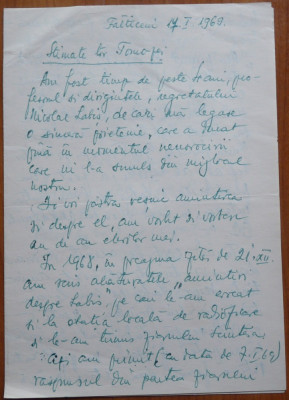 Fălticeni 17 I 1969.
Stimate tov Tomozei
Am fost timp de peste 3 ani, pro-
fesorul si dirigintele, regretatului
Nicolae Labiș, de care mă legase
o sinceră prietenie, care a durat
până în momentul nenorocirii
care ni l-a smuls din mijlocul
nostru.
Îi voi păstra veșnic amintirea
și despre el, am vorbit și vorbesc
an de an elevilor mei.
În 1968, în preajma zilei de 21 XII.
am scris alăturatele "amintiri
despre Labiș", pe care le-am
și la stația locală de radioficare
și le-am trimis ziarului Scânteia
Azi am primit (cu data de 7. I 69)
răspunsul din partea ziarului